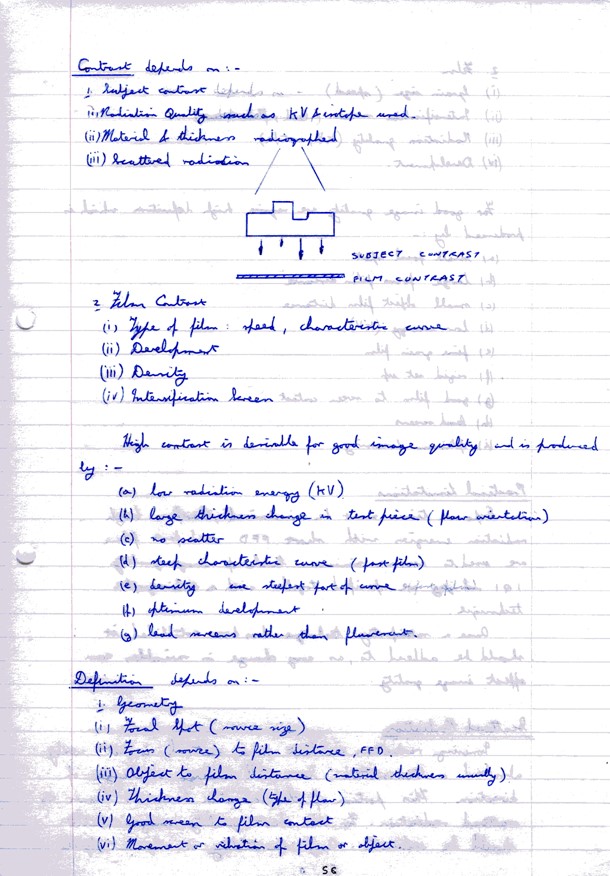 Contrast depends on :-
1. Subject contrast
(i) Radiation Quality such as KV & isotope used.
(ii) Material & thickness radiographed
(iii) Scattered radiation
SUBJECT CONTRAST
FILM CONTRAST
2 Film Contrast
(i) Type of film : speed, characteristic curve
(ii) Development
(iii) Density
(iv) Intensification Screen
High contrast is desirable for good image quality and is produced
by :-
(a) low radiation energy (KV)
(b) large thickness change in test piece (flaw orientation)
(c) no scatter
(d) steep characteristic curve (fast film)
(e) density use steepest part of curve
(f) optimum development
(g) lead screens rather than fluorescent.
Definition depends on :-
1. Geometry
(i) Focal Spot (source size)
(ii) Focus (source) to film distance, FFD.
(iii) Object to film distance (material thickness usually)
(iv) Thickness change (type of flaw)
(v) Good screen to film contact
(vi) Movement or vibration of film or object.
56